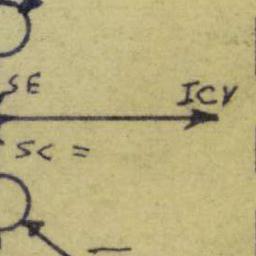 SE
ICV
SC =